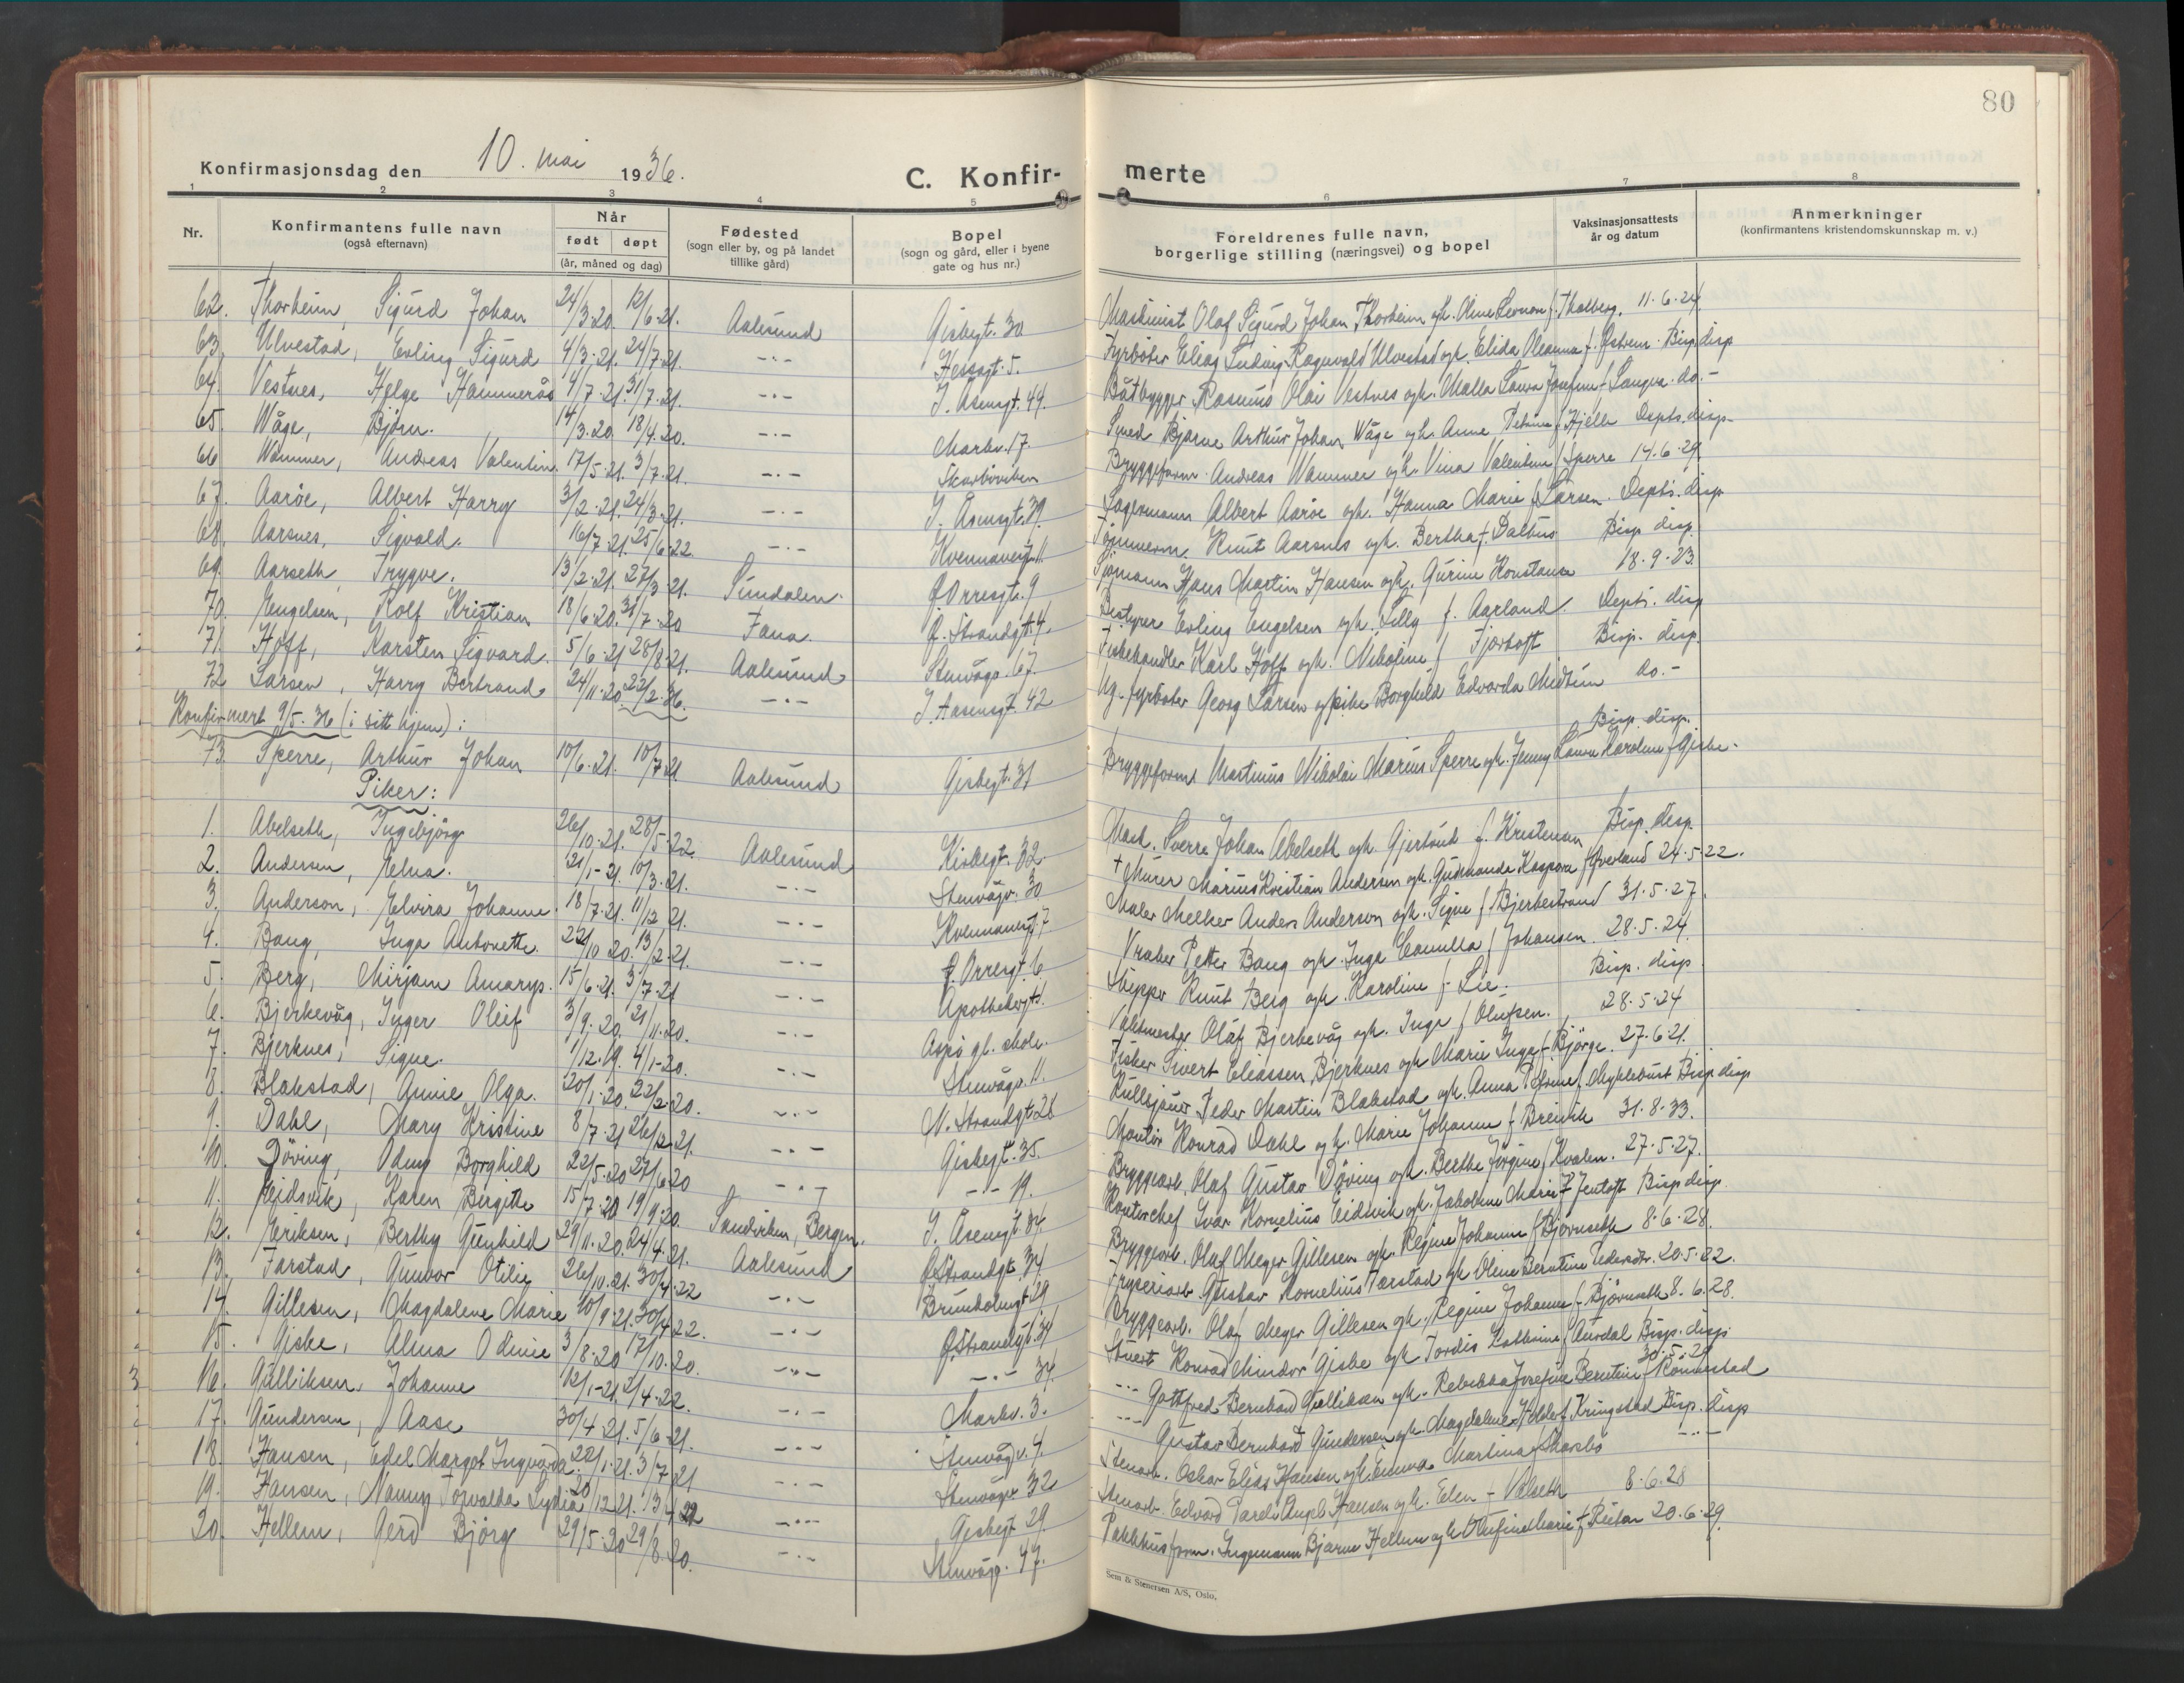 80
Konfirmasjonsdag den 10. mai 1936.
C. Konfir-
merte
1 2 3 4 5 6 7 8
Nr.
Konfirmantens fulle navn
(også efternavn)
Når
født døpt
(år, måned og dag)
Fødested
(sogn eller by, og på landet
tillike gård)
Bopel
(sogn og gård, eller i byene
gate og hus nr.)
Foreldrenes fulle navn,
borgerlige stilling (næringsvei) og bopel
Vaksinasjonsattests
år og datum
Anmerkninger
(konfirmantens kristendomskunnskap m. v.)
62. Thorheim, Sigurd Johan 24/3-20. 12/6-21. Aalesund Giskegt. 30 Maskinist Olaf Sigurd Johan Thorheim og h. Oline f. Thalberg. 11.6.24.
63. Ulvestad, Erling Sigurd 4/3-21. 24/7-21. -.- Hessagt. 5. Fyrböter Elias Ludvig Ragnvald Ulvestad og h. Elida Oleanna f. Östrem. Bisp. disp
64. Vestnes, Helge Hammerås 4/7-21. 31/7-21. -.- I. Åsensgt. 44. Båtbygger Rasmus Olai Vestnes og h. Malla Laura Josefine f. Langva. do.-
65. Wåge, Björn. 14/3-20. 18/4-20. -.- Markv. 17 Smed Bjarne Arthur Johan Wåge og h. Anne Petrine f. Hjelle Depts. disp.
66 Wammer, Andreas Valentin. 17/5-21. 3/7-21. -.- Skarböviken Bryggeform. Andreas Wammer og h. Vina Valentine f. Sperre 14.6.29.
67. Aaröe, Albert Harry 3/2-21. 24/3-21. -.- I. Åsensgt. 39. Lagermann Albert Aaröe og h. Hanna Marie f. Larsen. Depts. disp
68. Aarsnes, Sigvald. 16/7-21. 25/6-22 -.- Kvennavegt. 11 Tömmerm. Knut Aarsnes og h. Bertha f. Dalhus Bisp disp.
69. Aarseth, Trygve. 13/2-21. 27/3-21. Sundalen. Ø. Orresgt. 9 Sjömann Hans Martin Hansen og h. Gurine Konstanse 18.9.23.
70. Engelsen, Rolf Kristian 18/6-20. 31/7-20 Fana. Ø. Strandgt. 4. Bestyrer Erling Engelsen og h. Lilly f. Aarland Depts. disp
71. Hoff, Karsten Sigvard. 5/6-21 28/8-21. Aalesund Stenvågv. 67. Fiskehandler Karl Hoff og h. Nikoline f. Fjörtoft Bisp. disp.
72 Larsen, Harry Bertrand 24/11-20. 22/2-36. -.- I. Aasensgt. 42 Ug. fyrböter Georg Larsen og pike Borghild Edvarda Midtun do.-
Konfirmert 9/5-36 (i sitt hjem):
73. Sperre, Arthur Johan 10/6-21. 10/7-21 Aalesund Giskegt. 31 Bryggeform. Martinus Nikolai Marius Sperre og h. Jenny Laura Karoline f. Giske. Bisp. disp.
Piker:
1. Abelseth, Ingebjörg 26/10-21. 28/5-22. Aalesund Kirkegt. 32 Mask. Sverre Johan Abelseth og h. Gjertrud f. Kristensen Bisp. disp.
2. Andersen, Elna. 21/1-21. 10/3-21. -.- Stenvågv. 30 + Murer Marius Kristian Andersen og h. Gudmanda Kaspara f. Överland 24.5.22.
3. Anderson, Elvira Johanne. 18/7-21. 11/12-21. -.- Kvennavegt. 7 Maler Melker Anders Anderson og h. Signe f. Bjerkestrand 31.5.27.
4. Bang, Inga Antonette. 22/10-20. 13/2-21. -.- Ø. Orresgt. 6 Vraker Petter Bang og h. Inga Camilla f. Johansen. 28.5.24.
5. Berg, Mirjam Amarys. 15/6-21. 3/7-21 -.- Apothekergt. Skipper Knut Berg og h. Karoline f. Lie. Bisp. disp.
6. Bjerkevåg, Inger Oleif 3/9-20. 21/11-20. -.- Aspö gl. skole. Vaktmester Olaf Bjerkevåg og h. Inga f. Olufsen. 28.5.24
7. Bjerknes, Signe. 1/12-19. 4/1-20. -.- Stenvågv. 11. Fisker Sivert Eliassen Bjerknes og h. Marie Inga f. Björge. 27.6.21.
8. Blakstad, Annie Olga. 20/1-20. 22/2-20. -.- N. Strandgt. 28 Kullsjauer Peder Martin Blakstad og h. Anna Petrine f. Myklebust Bisp. disp
9. Dahl, Mary Kristine 8/7-21 26/12-21. -.- Giskegt. 35. Montör Konrad Dahl og h. Marie Johanne f. Breivik 31.8.33.
10. Döving, Odny Borghild 22/5-20 27/6-20 -.- -.- 19. Bryggearb. Olaf Gustav Döving og h. Berthe Jörgine f. Kvalen. 27.5.27.
11. Eidsvik, Karen Birgitte 15/7-20 19/9-20. Sandviken, Bergen. I. Åsensgt. 34 Kontorchef Ivar Kornelius Eidsvik og h. Jakobine Marie f. Jentoft Bisp. disp.
12. Eriksen, Berthy Gunhild 29/11-20. 24/4-21. Aalesund Ø. Strandgt. 34 Bryggearb. Olaf Meyer Gillesen og h. Regine Johanne f. Björnseth 8.6.28.
13. Farstad, Gunvor Otilie 26/10-21. 30/4-22 -.- Brunholmgt. 29 Fryseriarb. Gustav Kornelius Farstad og h. Oline Berntine Pedersdtr. 20.5.22.
14. Gillesen, Magdalene Marie 10/9-21. 30/4-22. -.- Ø. Strandgt. 34 Bryggearb. Olaf Meyer Gillesen og h. Regine Johanne f. Björnseth 8.6.28.
15. Giske, Alma Odinie 3/8-20 17/10-20. -.- -.- 34. Stuert Konrad Mindor Giske og h. Tordis Kathrine f. Aurdal Bisp. disp.
3 16. Gulliksen, Johanne 12/1-21. 2/4-22. -.- Markv. 3. -.- Gottfred Bernhard Gulliksen og h. Rebekka Josefine Berntine f. Rönnestad 30.5.29
17. Gundersen, Aase 30/4-21. 5/6-21. -.- Stenvågv. 4. -.- Gustav Bernhard Gundersen og h. Magdalene f. Kringstad Bisp. disp
18. Hansen, Edel Margot Ingvarda 22/1-21. 3/7-21 -.- Stenvågv. 32 Stenarb. Oskar Elias Hansen og h. Emma Martina f. Skarsbö -.-
19. Hansen, Nanny Torvalda Lydia 20/12-21. 13/4-22 -.- Giskegt. 29 Stenarb. Edvard Hansen og h. Elen f. Valseth 8.6.28
20. Hellem, Gerd Björg 29/5-20 29/8-20. -.- Stenvågv. 47. Pakkhusform. Ingemann Bjarne Hellem og h. Olufine Marie f. Reitan 20.6.29.
Sem & Stenersen A/S, Oslo.